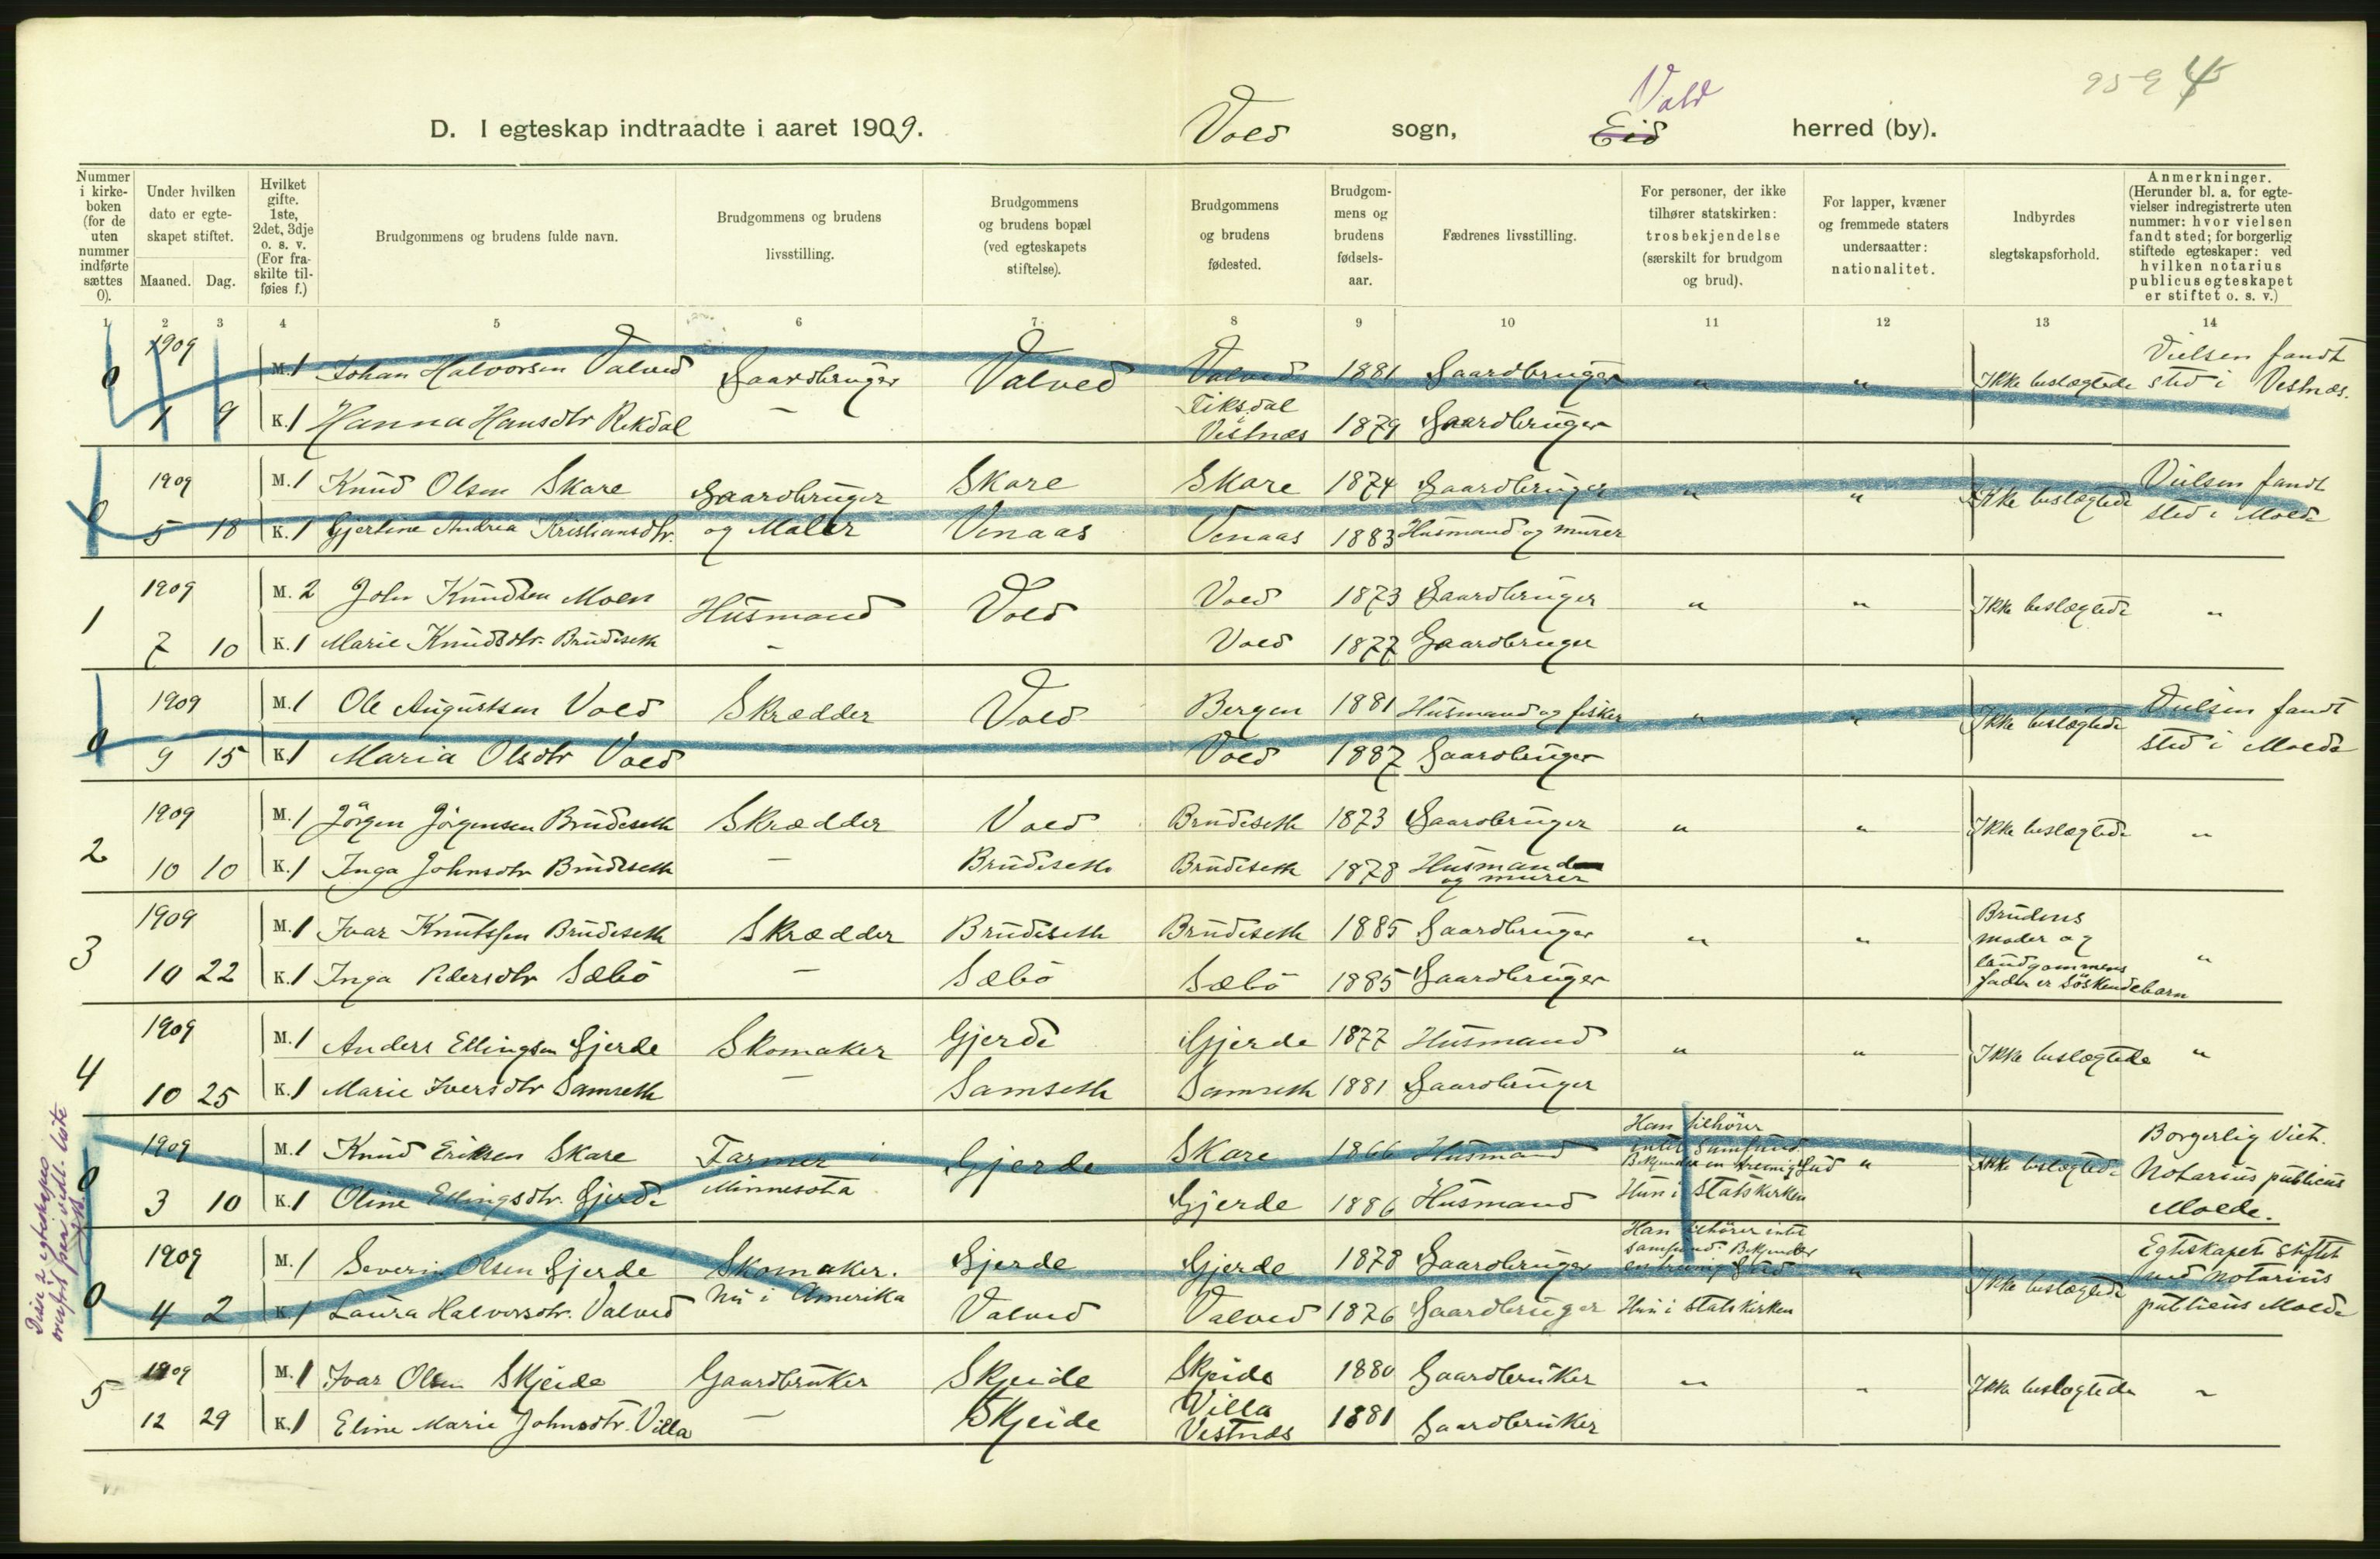 959 4
Vold
D. I egteskap indtraadte i aaret 1909. Vold sogn, Eid herred (by).
Nummer i kirkeboken (for de uten nummer indførte sættes 0).
Under hvilken dato er egteskapet stiftet.
Maaned. Dag.
Hvilket gifte. 1ste, 2det, 3dje o. s. v. (For fraskilte tilføies f.)
Brudgommens og brudens fulde navn.
Brudgommens og brudens livsstilling.
Brudgommens og brudens bopæl (ved egteskapets stiftelse).
Brudgommens og brudens fødested.
Brudgommens og brudens fødselsaar.
Fædrenes livsstilling.
For personer, der ikke tilhører statskirken: trosbekjendelse (særskilt for brudgom og brud).
For lapper, kvæner og fremmede staters undersaatter: nationalitet.
Indbyrdes slegtskapsforhold.
Anmerkninger. (Herunder bl. a. for egtevielser indregistrerte uten nummer: hvor vielsen fandt sted; for borgerlig stiftede egteskaper: ved hvilken notarius publicus egteskapet er stiftet o. s. v.)
1 2 3 4 5 6 7 8 9 10 11 12 13 14
0 1909 M. 1 Johan Halvorsen Valved Gaardbruger Valved Valved 1881 Gaardbruger " " Ikke beslægtede Vielsen fandt sted i Vestnæs.
1 9 K. 1 Hanna Hansdtr Rekdal — Fiksdal i Vestnæs 1879 Gaardbruger
0 1909 M. 1 Knud Olsen Skare Gaardbruger Skare Skare 1874 Gaardbruger " " Ikke beslægtede Vielsen fandt
5 18 K. 1 Gjertine Andrea Kristiansdtr. og Maler Venaas Venaas 1883 Husmand og murer sted i Molde
1 1909 M. 2 John Knudsen Moen Husmand Vold Vold 1873 Gaardbruger " " Ikke beslægtede "
7 10 K. 1 Marie Knudsdtr. Brudeseth — Vold 1877 Gaardbruger
0 1909 M. 1 Ole Augustsen Vold Skrædder Vold Bergen 1881 Husmand og fisker " " Ikke beslægtede Vielsen fandt
9 15 K. 1 Maria Olsdtr Vold Vold 1887 Gaardbruger sted i Molde
2 1909 M. 1 Jörgen Jörgensen Brudeseth Skrædder Vold Brudeseth 1873 Gaardbruger " " Ikke beslægtede "
10 10 K. 1 Inga Johnsdtr Brudeseth — Brudeseth Brudeseth 1878 Husmand og murer
3 1909 M. 1 Ivar Knutssen Brudeseth Skrædder Brudeseth Brudeseth 1885 Gaardbruger " " Brudens moder og brudgommens fader er söskendebarn "
10 22 K. 1 Inga Pedersdtr Sæbö — Sæbö Sæbö 1885 Gaardbruger
4 1909 M. 1 Anders Ellingsen Gjerde Skomaker Gjerde Gjerde 1877 Husmand " " Ikke beslægtede "
10 25 K. 1 Marie Iversdtr Samseth — Samseth Samseth 1881 Gaardbruger
0 1909 M. 1 Knud Eriksen Skare Farmer i Gjerde Skare 1866 Husmand Han tilhörer intet Samfund. Bekjender en treenig Gud " Ikke beslægtede Borgerlig viet. Notarius publicus Molde.
3 10 K. 1 Oline Ellingsdtr. Gjerde Minnesota Gjerde 1886 Husmand Hun i Statskirken
0 1909 M. 1 Severin Olsen Gjerde Skomaker. Gjerde Gjerde 1878 Gaardbruger Han tilhörer intet Samfund. Bekjender en treenig Gud " Ikke beslægtede Egteskapet stiftet ved notarius publicus Molde
4 2 K. 1 Laura Halvorsdtr. Valved nu i Amerika Valved Valved 1876 Gaardbruger Hun i Statskirken
5 1909 M. 1 Ivar Olsen Skjeide Gaardbruker Skjeide Skjeide 1880 Gaardbruker " " Ikke beslægtede "
12 29 K. 1 Eline Marie Johnsdtr. Villa — Skjeide Villa Vestnæs 1881 Gaardbruker
Disse 2 egteskaper
overfört paa vedl. liste